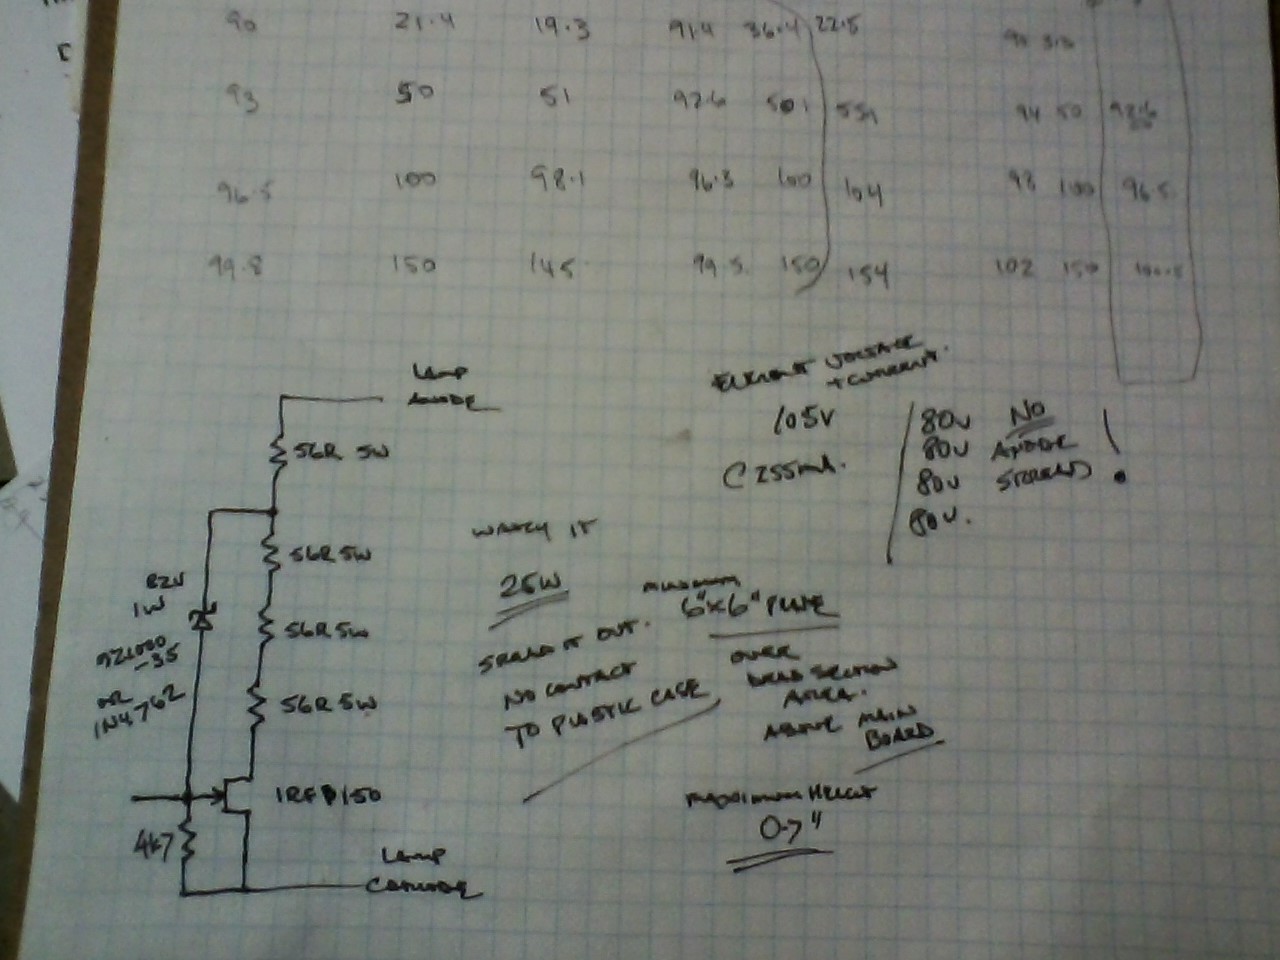 90 21.4 19.3 91.4 36.4 22.5
93 50 51 92.6 50.1
96.5 100 98.1 96.3 100 104 93 100 96.5
99.8 150 145 99.5 150 154 102 150
Lamp
Anode
56R 5W
82V
1W
56R 5W
56R 5W
-35
or
1N4762
56R 5W
IRFP150
4k7
Lamp
Cathode
Voltage
+ Current.
105V
255mA.
80V NO
80V ANODE
80V
80V.
!
25W
SPREAD IT OUT.
NO CONTACT
TO PLASTIC CASE
6"x6" PLATE
OVER
DEAD SECTION
AREA.
ABOVE MAIN
BOARD
MAXIMUM HEIGHT
0.7"